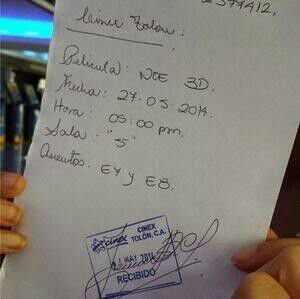 2377412.
Cinex Tolon:
Película: NOE 3D.
Fecha: 27.05.2014.
Hora: 05:00 pm.
Sala: "5"
Asientos: E7 y E8.
cinex CINEX
TOLÓN, C.A.
MAY 2014
RECIBIDO